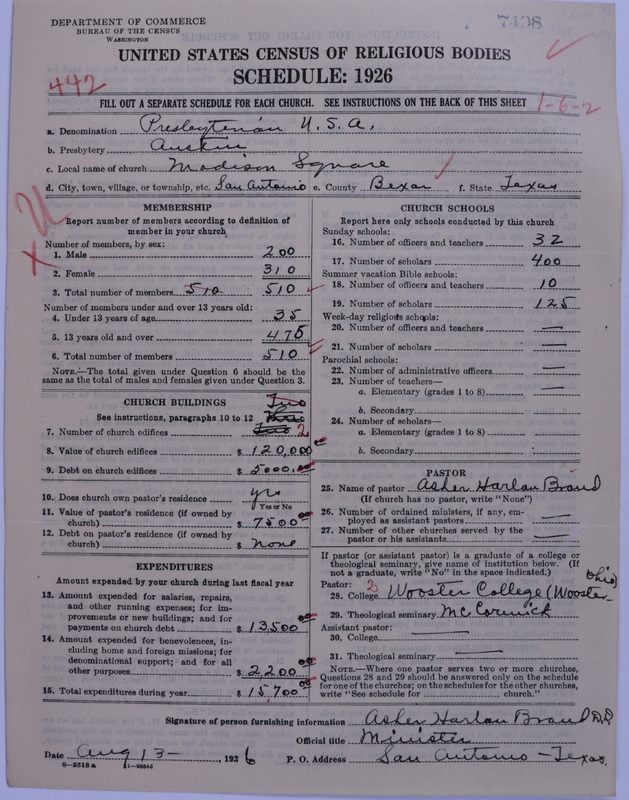 DEPARTMENT OF COMMERCE
BUREAU OF THE CENSUS
WASHINGTON
7498
UNITED STATES CENSUS OF RELIGIOUS BODIES
SCHEDULE: 1926
442
FILL OUT A SEPARATE SCHEDULE FOR EACH CHURCH. SEE INSTRUCTIONS ON THE BACK OF THIS SHEET
1-6-2
a. Denomination Presbyterian U.S.A.
b. Presbytery Austin
c. Local name of church Madison Square
d. City, town, village, or township, etc. San Antonio e. County Bexar f. State Texas
MEMBERSHIP
Report number of members according to definition of
member in your church
Number of members, by sex:
1. Male 200
2. Female 310
3. Total number of members 510 510
Number of members under and over 13 years old:
4. Under 13 years of age 35
5. 13 years old and over 475
6. Total number of members 510
NOTE.—The total given under Question 6 should be
same as the total of males and females given under Question 3.
CHURCH BUILDINGS
Two
See instructions, paragraphs 10 to 12
7. Number of church edifices Two 2
8. Value of church edifices $ 120,000
9. Debt on church edifices $ 5000.00
10. Does church own pastor's residence yes
Yes or No
11. Value of pastor's residence (if owned by
church) $ 7500.00
12. Debt on pastor's residence (if owned by
church) $ none
EXPENDITURES
Amount expended by your church during last fiscal year
13. Amount expended for salaries, repairs,
and other running expenses; for im-
provements or new buildings; and for
payments on church debt $ 13,500.00
14. Amount expended for benevolences, in-
cluding home and foreign missions; for
denominational support; and for all
other purposes $ 2,200.00
15. Total expenditures during year $ 15,700.00
CHURCH SCHOOLS
Report here only schools conducted by this church
Sunday schools:
16. Number of officers and teachers 32
17. Number of scholars 400
Summer vacation Bible schools:
18. Number of officers and teachers 10
19. Number of scholars 125
Week-day religious schools:
20. Number of officers and teachers —
21. Number of scholars —
Parochial schools:
22. Number of administrative officers —
23. Number of teachers—
a. Elementary (grades 1 to 8) —
b. Secondary
24. Number of scholars—
a. Elementary (grades 1 to 8) —
b. Secondary
PASTOR
25. Name of pastor Asher Harlan Brand
(If church has no pastor, write "None")
26. Number of ordained ministers, if any, em-
ployed as assistant pastors —
27. Number of other churches served by the
pastor or his assistants —
If pastor (or assistant pastor) is a graduate of a college or
theological seminary, give name of institution below. (If
not a graduate, write "No" in the space indicated.)
Pastor: 2
28. College Wooster College (Wooster- Ohio)
29. Theological seminary McCormick
Assistant pastor:
30. College —
31. Theological seminary —
NOTE.—Where one pastor serves two or more churches,
Questions 28 and 29 should be answered only on the schedule
for one of the churches; on the schedules for the other churches,
write "See schedule for ........ church."
Signature of person furnishing information Asher Harlan Brand D.D.
Official title Minister
Date Aug 13 —, 1926 P. O. Address San Antonio - Texas
8—5518 a